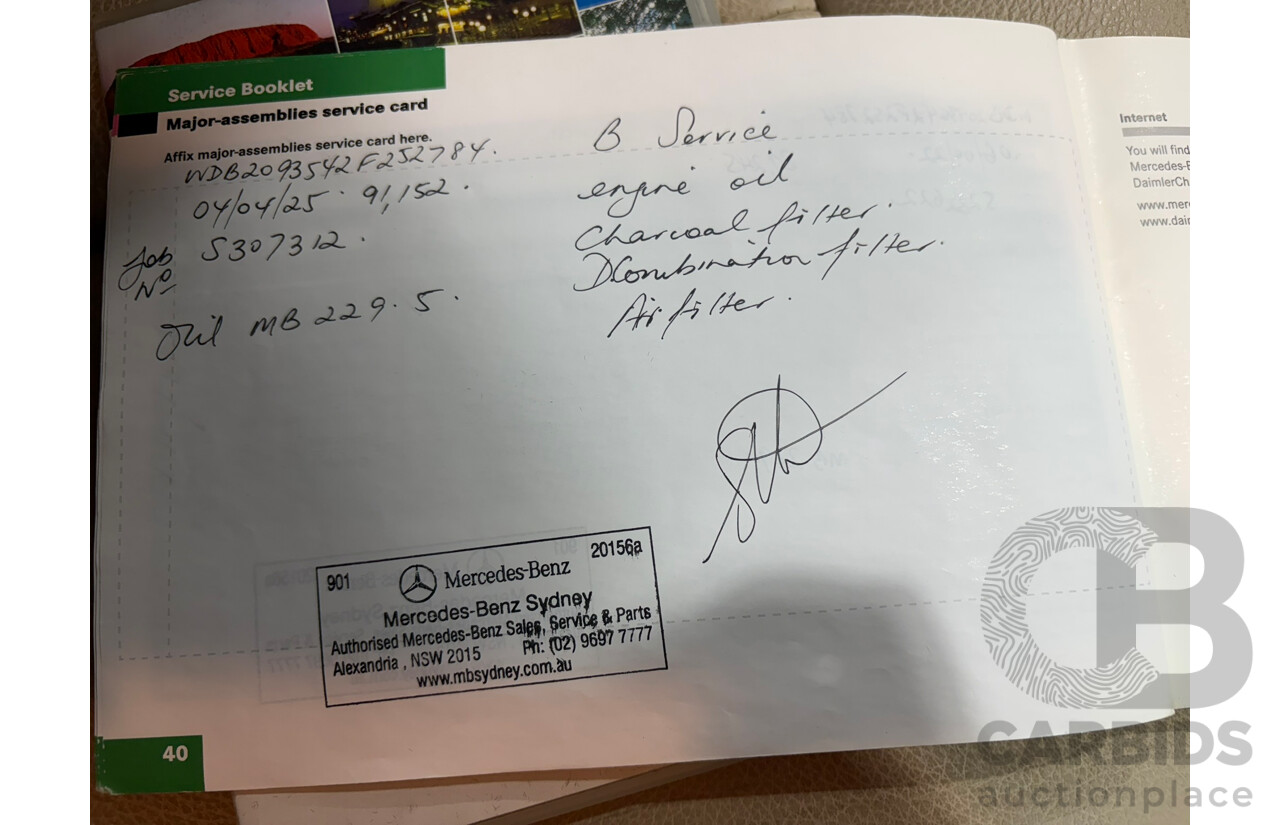 Service Booklet
Major-assemblies service card
Affix major-assemblies service card here.
WDB2093542F252784.
04/04/25 · 91,152.
Job No S307312.
Oil MB 229.5.
B Service
engine oil
Charcoal filter.
Combination filter.
Air filter.
901 Mercedes-Benz 20156a
Mercedes-Benz Sydney
Authorised Mercedes-Benz Sales, Service & Parts
Alexandria , NSW 2015 Ph: (02) 9697 7777
www.mbsydney.com.au
40
Internet
You will find
Mercedes-B
DaimlerCh
www.mer
www.dai
CB
CARBIDS
auctionplace